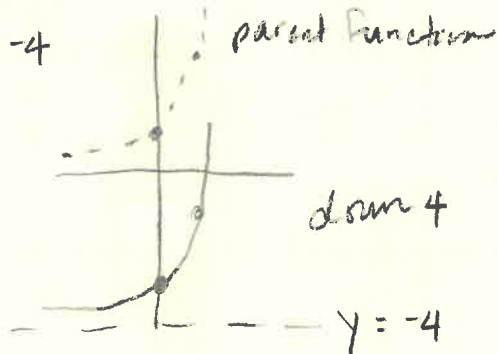 -4
parent function
down 4
y = -4